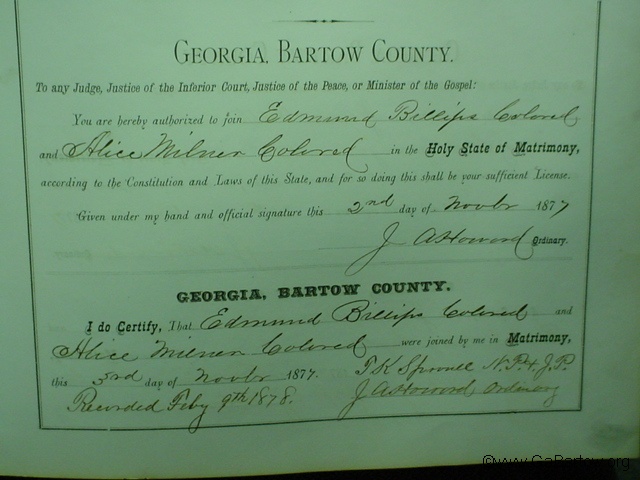 GEORGIA, BARTOW COUNTY.
To any Judge, Justice of the Inferior Court, Justice of the Peace, or Minister of the Gospel:
You are hereby authorized to join Edmund Billips Colored
and Alice Milner Colored in the Holy State of Matrimony,
according to the Constitution and Laws of this State, and for so doing this shall be your sufficient License.
Given under my hand and official signature this 2nd day of Novbr 1877
J A Howard Ordinary.
GEORGIA, BARTOW COUNTY.
I do Certify, That Edmund Billips Colored and
Alice Milner Colored were joined by me in Matrimony,
this 3rd day of Novbr 1877. T K Sproull N.P. & J.P.
Recorded Feby 9th 1878. J A Howard, Ordinary
©www.GaBartow.org